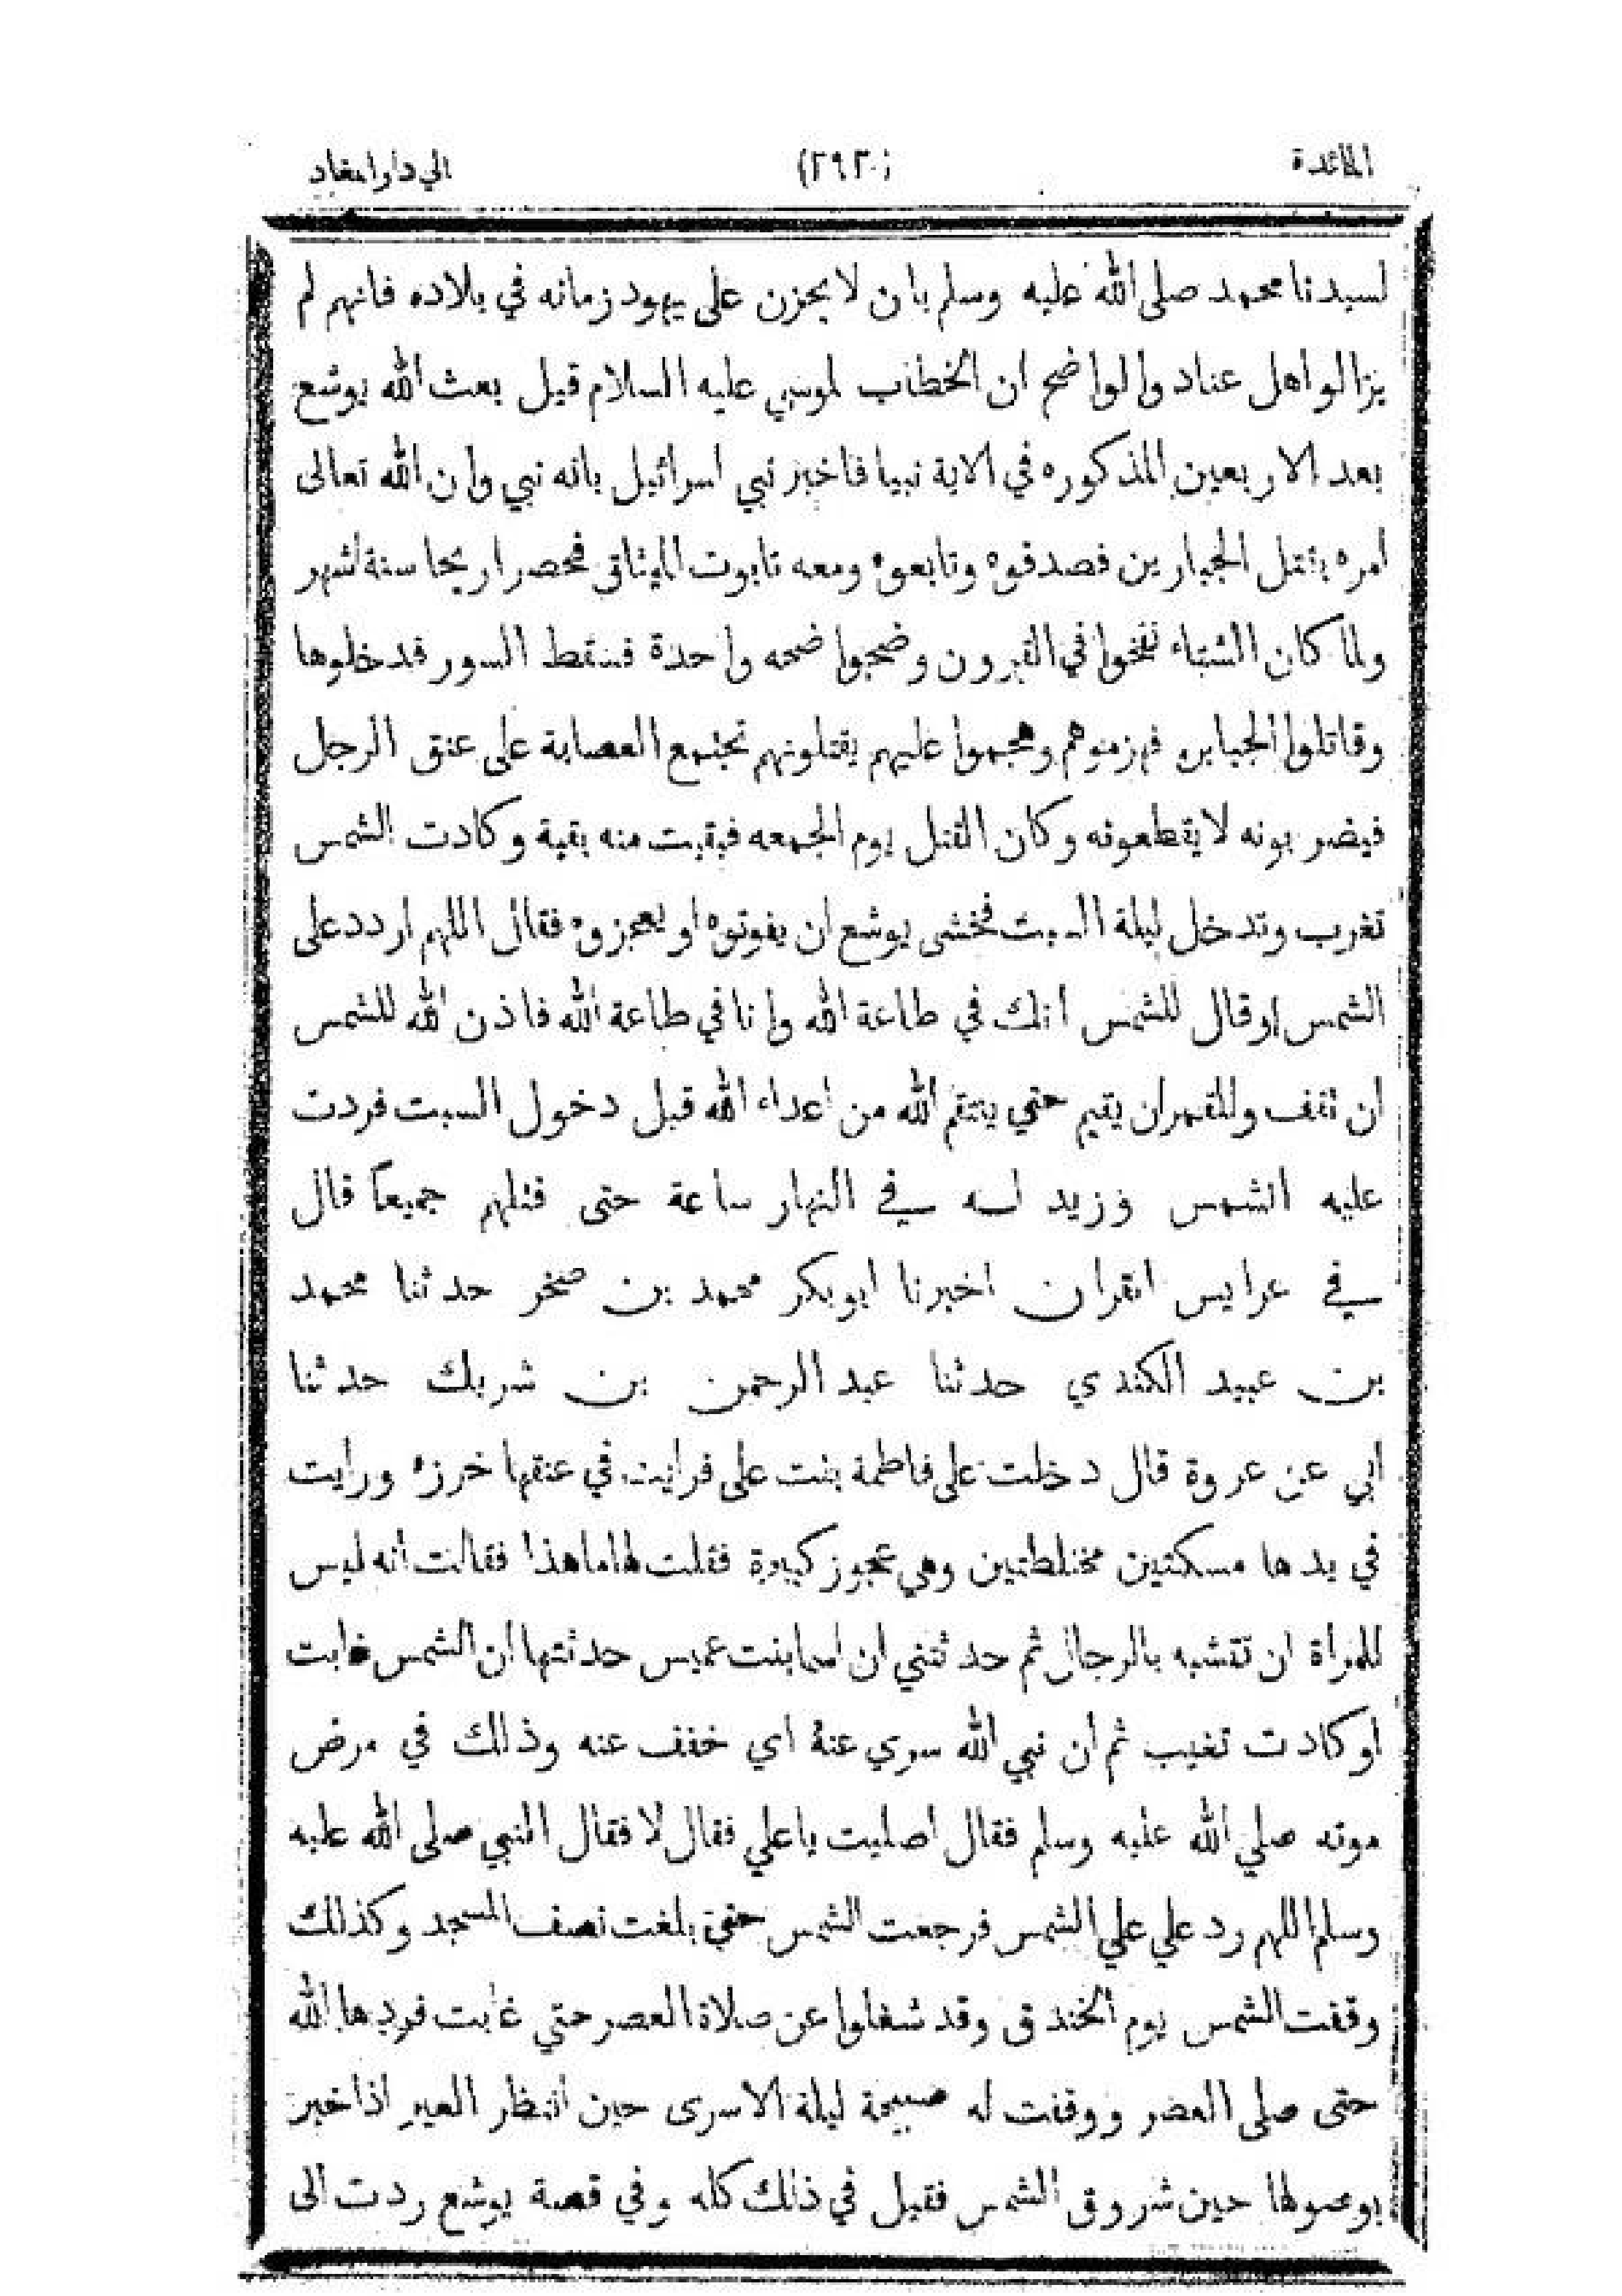 المائدة (٢٩٢) الي دار المعاد
لسيدنا محمد صلى الله عليه وسلم بان لا يحزن على يهود زمانه في بلاده فانهم لم
يزالوا اهل عناد والواضح ان الخطاب لموسي عليه السلام قيل بعث الله يوشع
بعد الاربعين المذكوره في الاية نبيا فاخبر نبي اسرائيل بانه نبي وان الله تعالى
امره بقتل الجبارين فصدقوه وتابعوه ومعه تابوت الميثاق فحصر اريحا ستة اشهر
ولما كان الشتاء نفخوا في القرون وضجوا ضجه واحدة فسقط السور فدخلوها
وقاتلوا الجبابره فهزموهم وهجموا عليهم يقتلونهم تجتمع العصابة على عنق الرجل
فيضربونه لا يقطعونه وكان القتل يوم الجمعه فبقيت منه بقية وكادت الشمس
تغرب وتدخل ليلة السبت فخشى يوشع ان يفوتوه او يعجزوه فقال اللهم اردد على
الشمس او قال للشمس انك في طاعة الله وانا في طاعة الله فاذن الله للشمس
ان تقف وللقمر ان يقيم حتي ينتقم الله من اعداء الله قبل دخول السبت فردت
عليه الشمس وزيد له في النهار ساعة حتى قتلهم جميعا قال
في عرايس القران اخبرنا ابو بكر محمد بن صخر حدثنا محمد
بن عبيد الكندي حدثنا عبد الرحمن بن شريك حدثنا
ابي عن عروة قال دخلت على فاطمة بنت على فرايت في عنقها خرزه ورايت
في يدها مسكتين مختلطتين وهي عجوز كبيرة فقلت لها ما هذا فقالت أنه ليس
للمراة ان تتشبه بالرجال ثم حدثتني ان اسما بنت عميس حدثتها ان الشمس غابت
او كادت تغيب ثم أن نبي الله سري عنه اي خفف عنه وذلك في مرض
موته صلي الله عليه وسلم فقال اصليت يا علي فقال لا فقال النبي صلى الله عليه
وسلم اللهم رد علي علي الشمس فرجعت الشمس حتي بلغت نصف المسجد وكذلك
وقفت الشمس يوم الخندق وقد شغلوا عن صلاة العصر حتي غابت فردها الله
حتى صلى العصر ووقفت له صبيحة ليلة الاسرى حين انتظار العير اذا خبر
بوصولها حين شروق الشمس فقيل في ذلك كله وفي قصة يوشع ردت الى